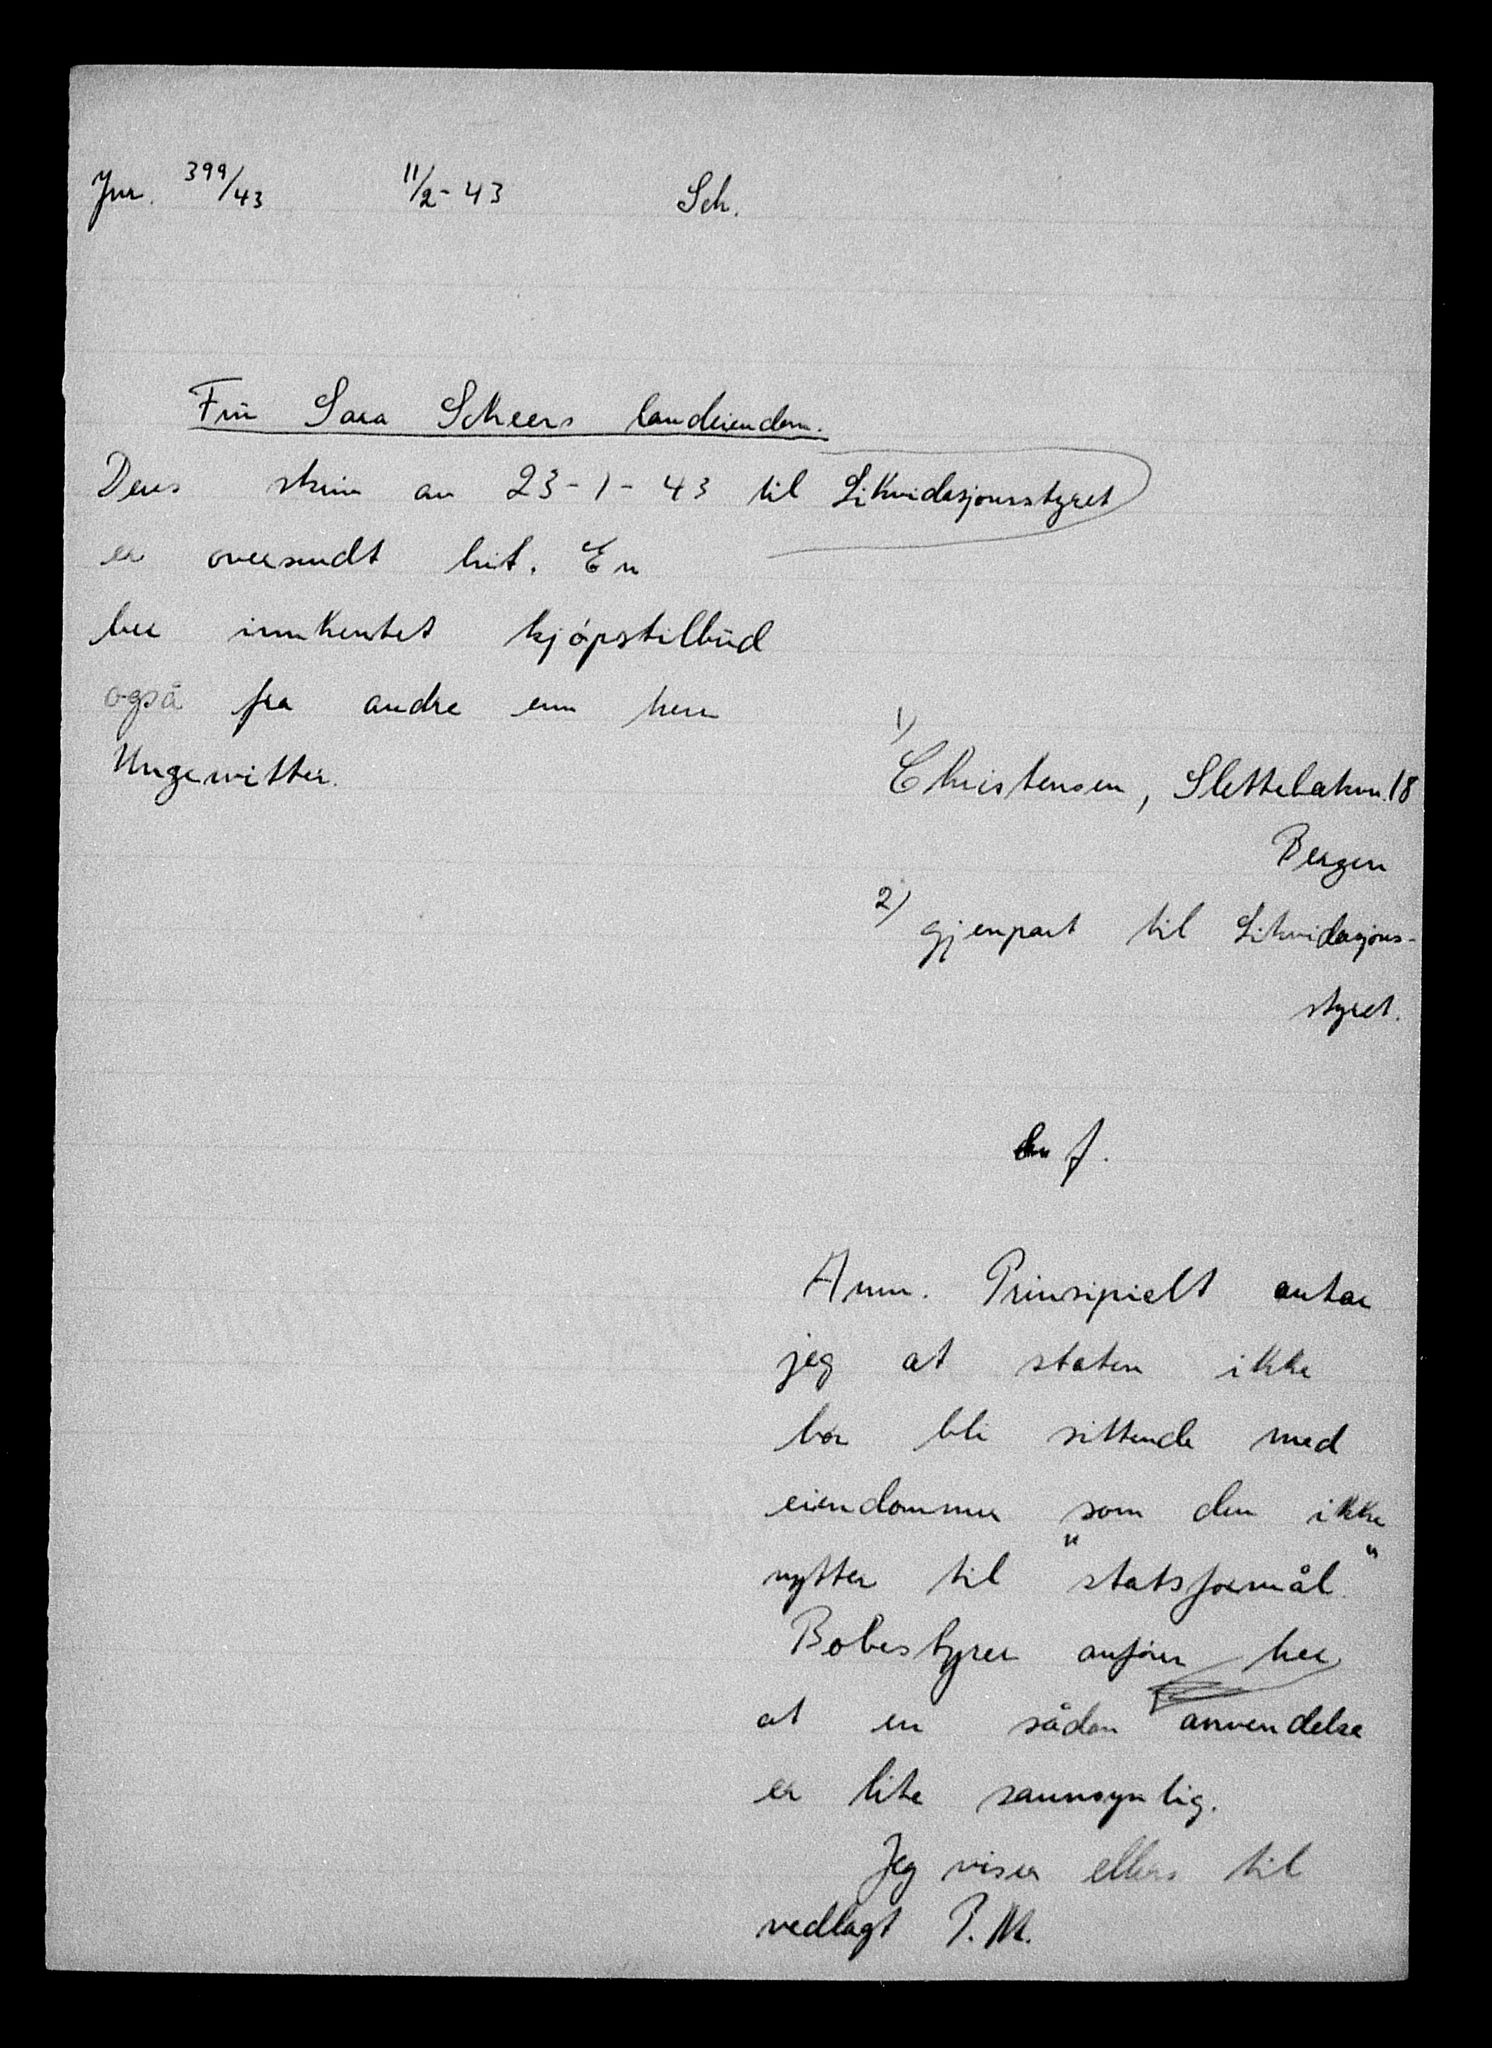 Jnr. 399/43 11/2-43 Sch.
Frü Sara Scheers landeiendom.
Deres skriv av 23-1-43 til Likvidasjonsstyret
er oversendt hit. En
ber innhentet kjöpstilbüd
også fra andre enn herr
Ungewitter.
1)
Christensen, Slettebakvn. 18
Bergen
2) gjenpart til Likvidasjons-
styret.
f.
Anm. Prinsipielt antar
jeg at staten ikke
bør bli sittende med
eiendommer som den ikke
nytter til "statsformål".
Bobestyrer anfører her
at en sådan anvendelse
er lite sannsynlig.
Jeg viser ellers til
vedlagt P.M.